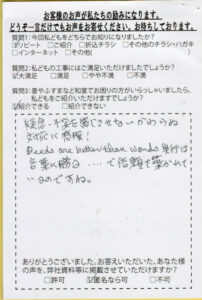 お客様のお声が私たちの励みになります。
どうぞ一言だけでもお声をお寄せください。お待ちしております。
質問1:今回私どもをどちらでお知りになりましたか?
☑リピート □ご紹介 □折込チラシ □その他のチラシ・ハガキ
□インターネット □その他(
質問2:私どもの工事にはご満足いただけましたでしょうか?
☑大満足 □満足 □やや不満 □不満
質問3:畳やふすまなど和室でお困りの方がいらっしゃいましたら、
私どもをご紹介いただけますでしょうか?
☑紹介できる □紹介できない
対応に感服!
Deeds are better than words 実行は
言葉に勝る ・・・・で信頼で築かれて
いるのですね。
ありがとうございました。お答えいただいた、あなた様
の声を、弊社資料等に掲載させていただけますか?
□許可 ☑匿名なら可 □不可